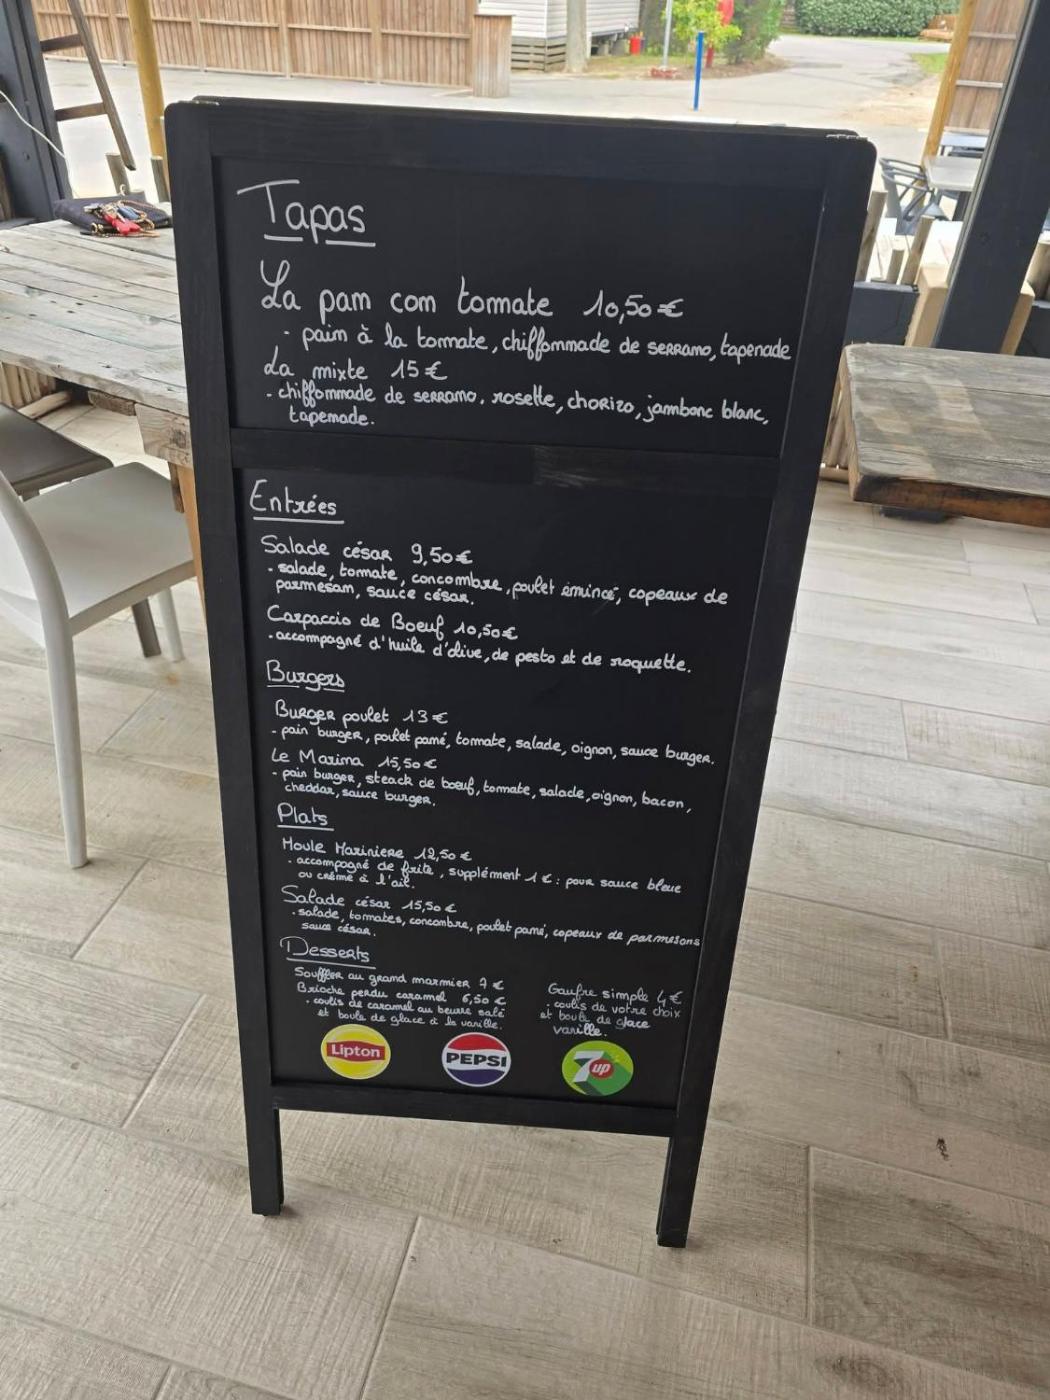 Tapas
La pam com tommate 10,50 €
- paim à la tommate, chiffommade de serramo, tapenade
La mixte 15 €
- chiffommade de serramo, rosette, chorizo, jambomc blanc,
tapemade.
Entrées
Salade césar 9,50 €
- salade, tommate, concombre, poulet émincé, copeaux de
parmesam, sauce césar.
Carpaccio de Boeuf 10,50 €
- accompagné d'huile d'olive, de pesto et de roquette.
Burgers
Burger poulet 13 €
- pain burger, poulet pamé, tomate, salade, oignon, sauce burger.
Le Marina 15,50 €
- pain burger, steack de boeuf, tommate, salade, oignon, bacon,
cheddar, sauce burger.
Plats
Moule Mariniere 12,50 €
- accompagné de frite, supplément 1 € : pour sauce bleue
ou crème à l'ail.
Salade césar 15,50 €
- salade, tommates, concombre, poulet pamé, copeaux de parmesons
sauce césar.
Desserts
Souffler au grand marmier 7 €
Brioche perdu caramel 6,50 €
- coulis de caramel au beurre salé
et boule de glace à la vanille.
Gaufre simple 4 €
- coulis de votre choix
et boule de glace
vanille.
Lipton PEPSI 7up